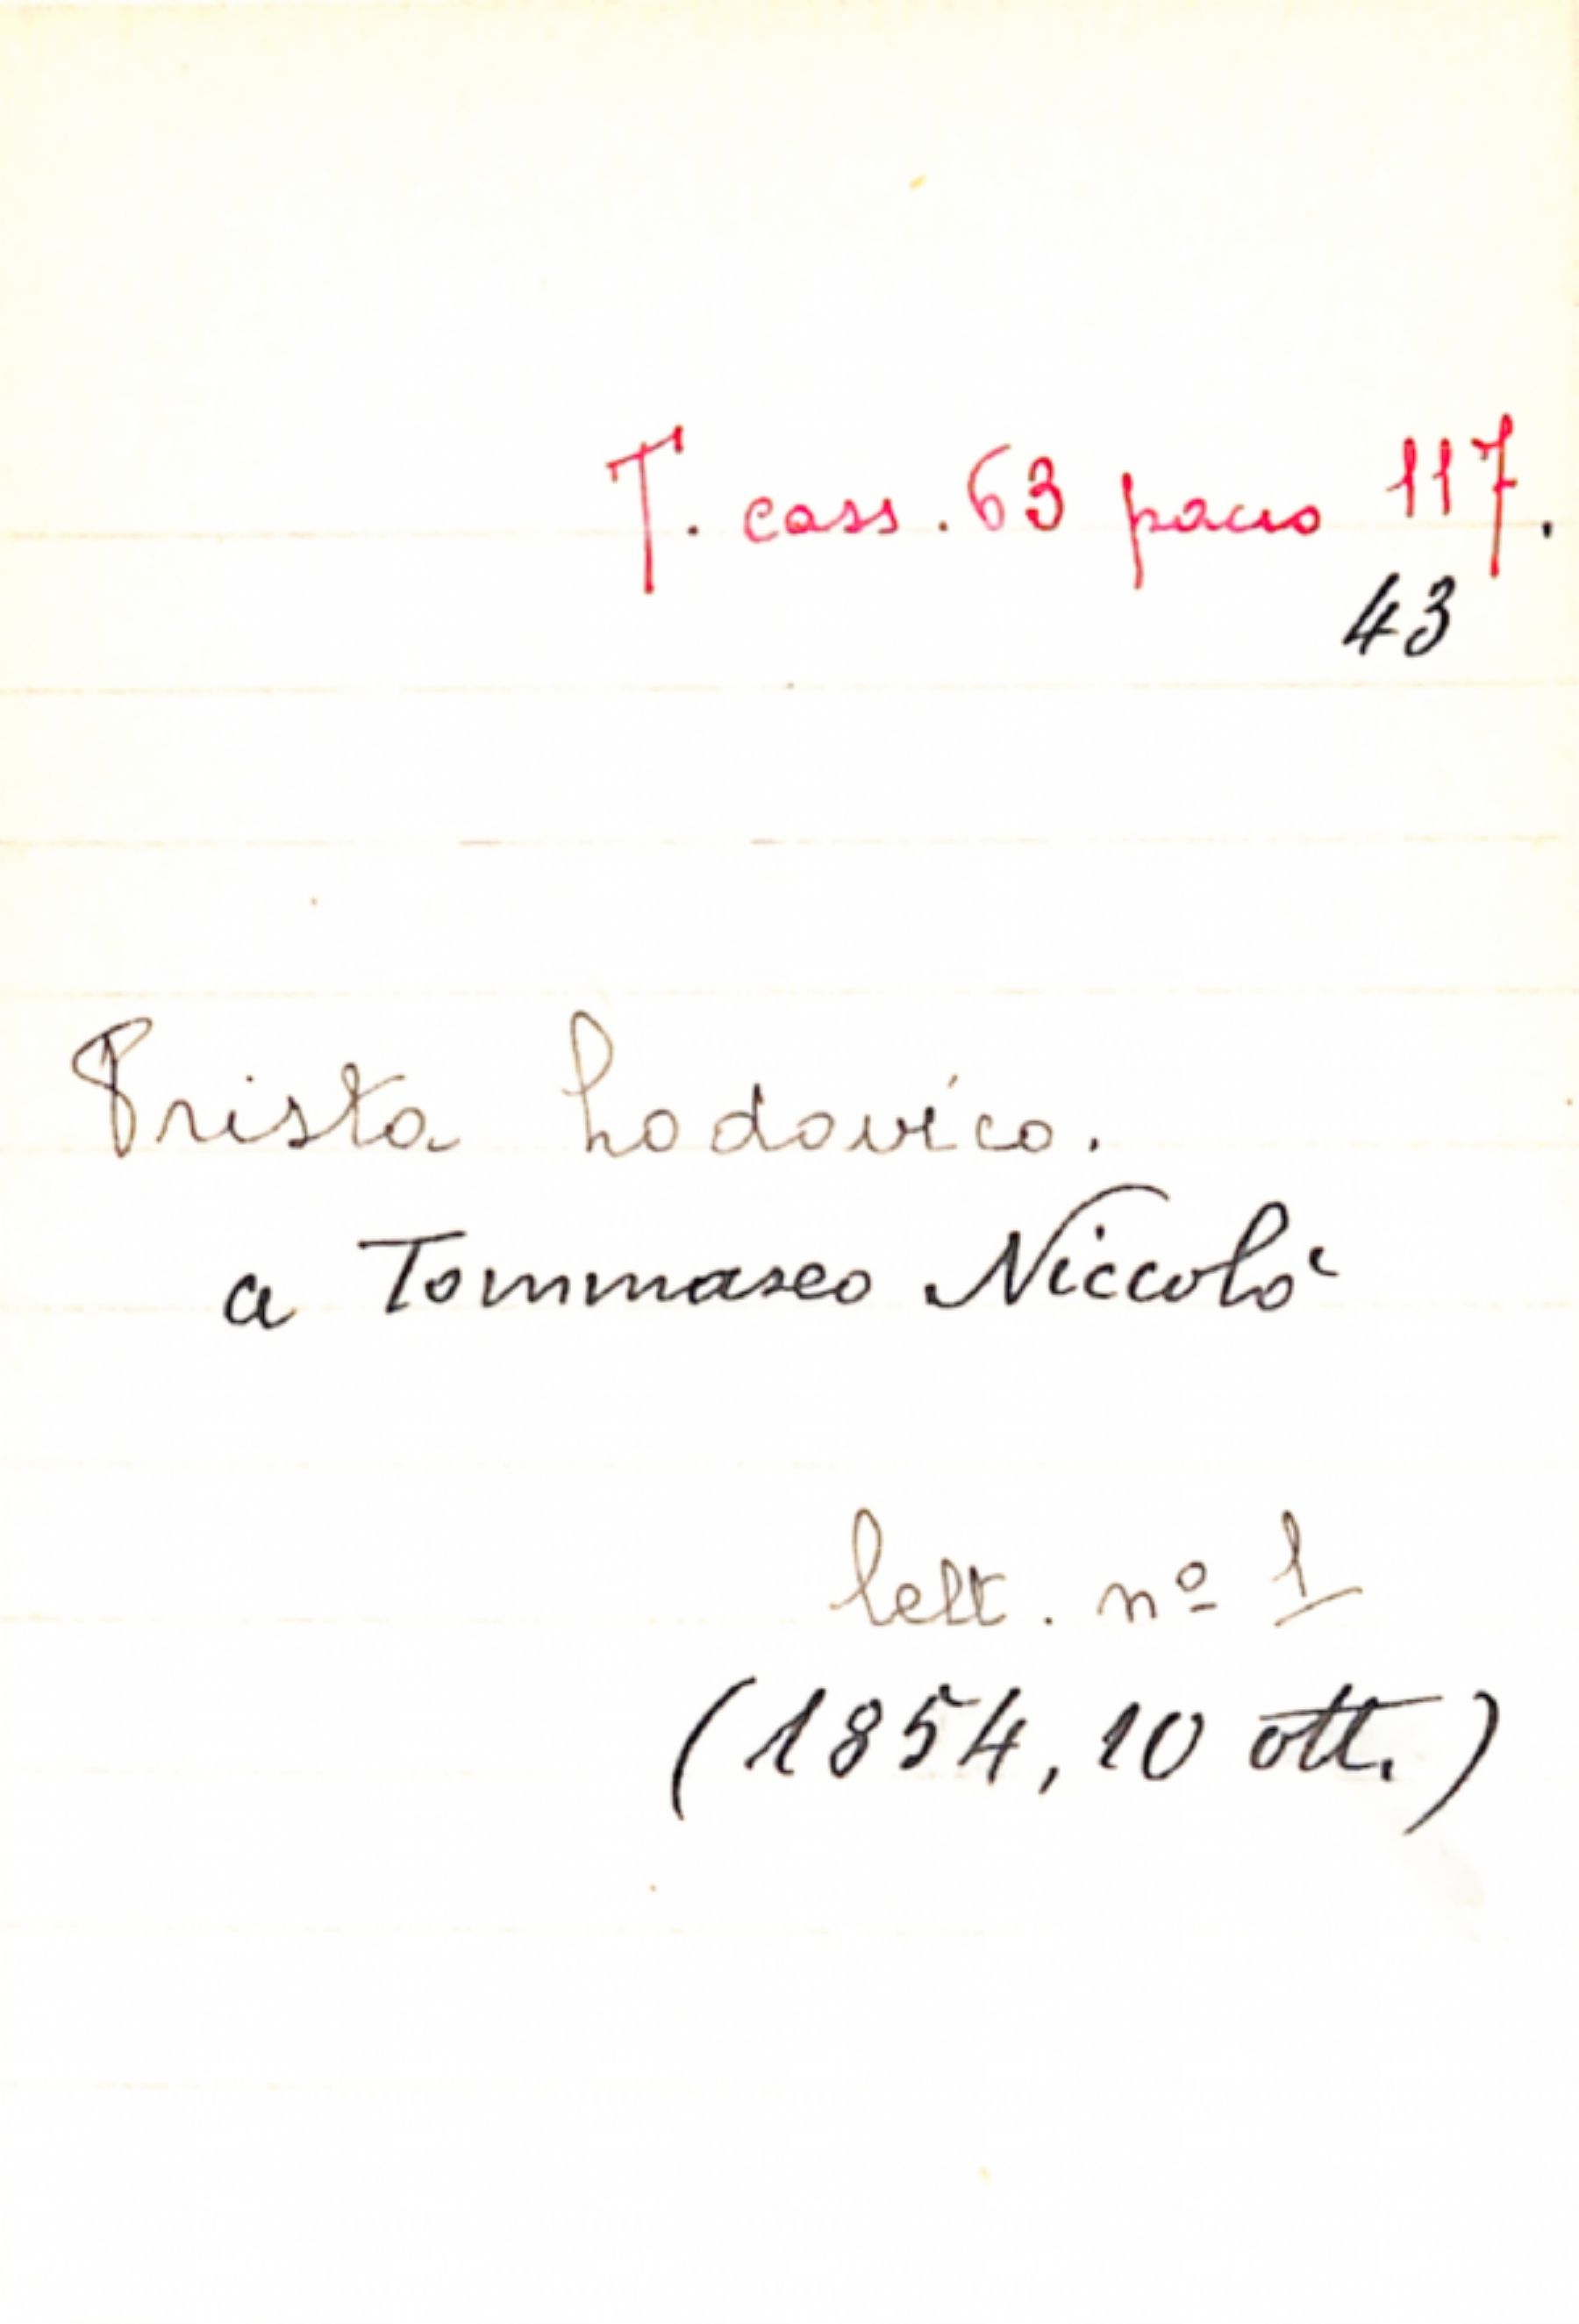 T. cass. 63 pacco 117.
43
Prista Lodovico.
a Tommaseo Niccolò
lett. nº 1
(1854, 10 ott.)